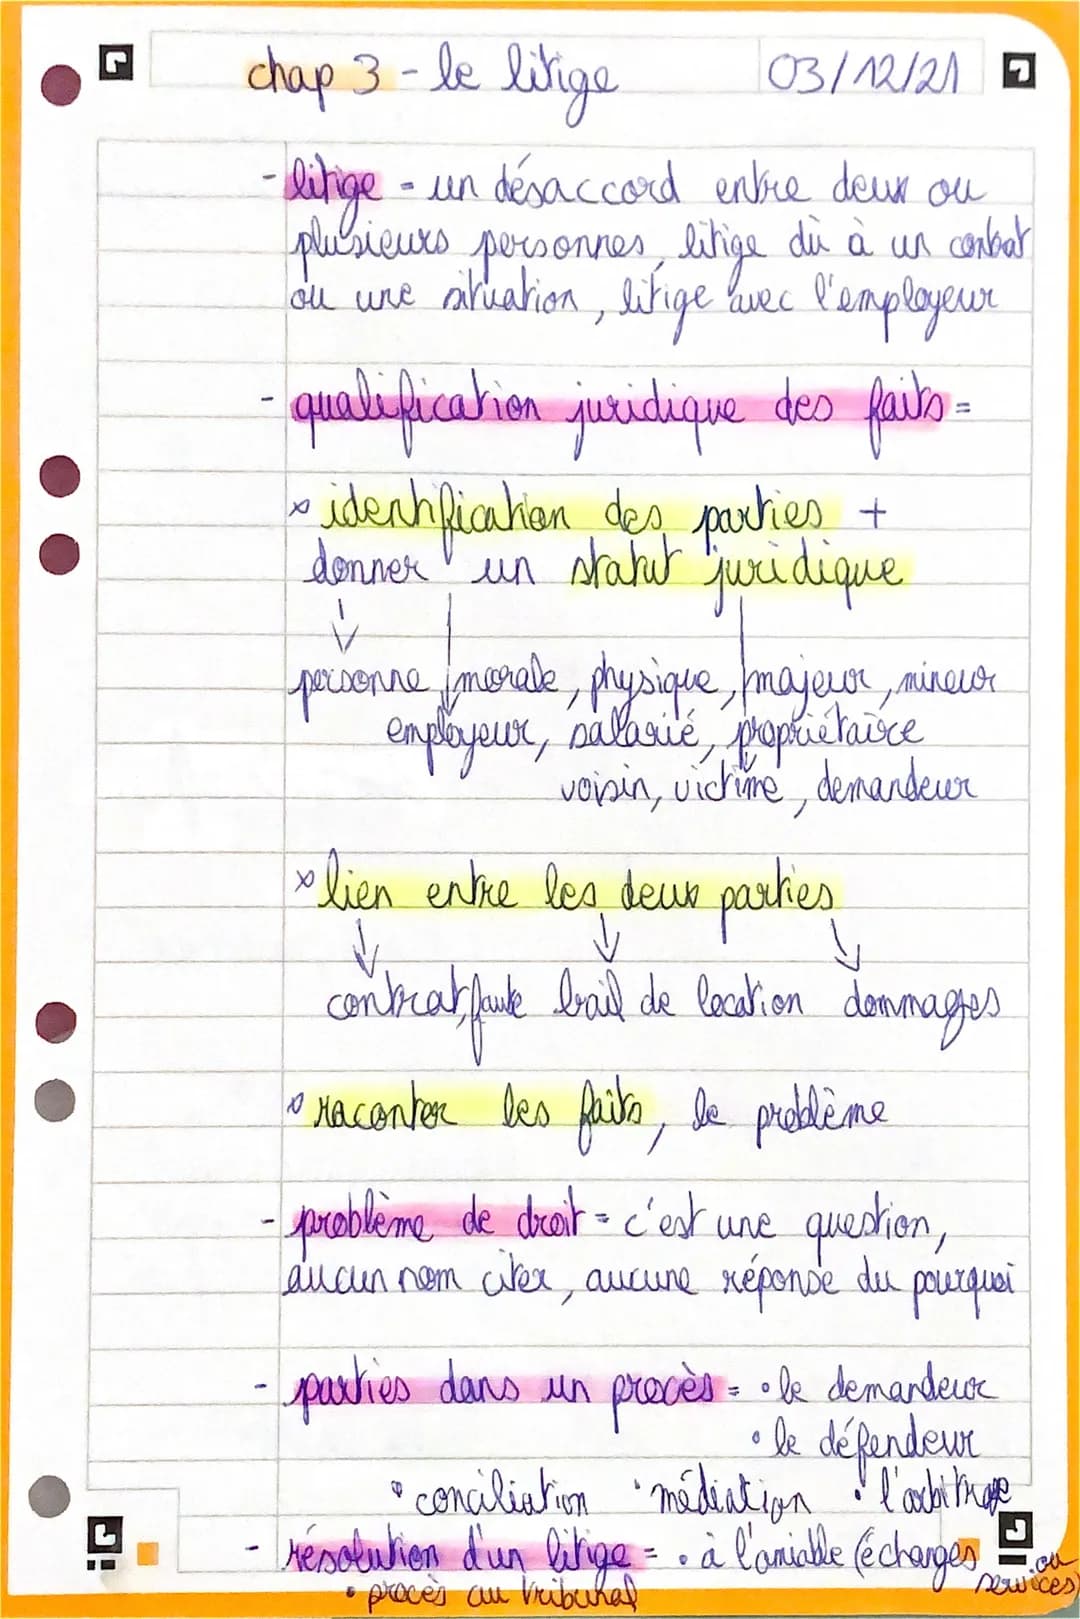 chap 3 - le litige 03/12/21
- litige - un désaccord entre deux ou
plusieurs personnes, litige dû à un contrat
ou une situation, litige avec l'employeur
- qualification juridique des faits =
x identification des parties +
donner un statut juridique
personne morale, physique, majeur, mineur
employeur, salarié, propriétaire
voisin, victime, demandeur
x lien entre les deux parties
contrat, faute bail de location dommages
x raconter les faits, le problème
- problème de droit = c'est une question,
aucun nom citer, aucune réponse du pourquoi
- parties dans un procès = • le demandeur
• le défendeur
• conciliation • médiation • l'arbitrage
- résolution d'un litige = • à l'amiable (échanges ou
services)
• procès au tribunal